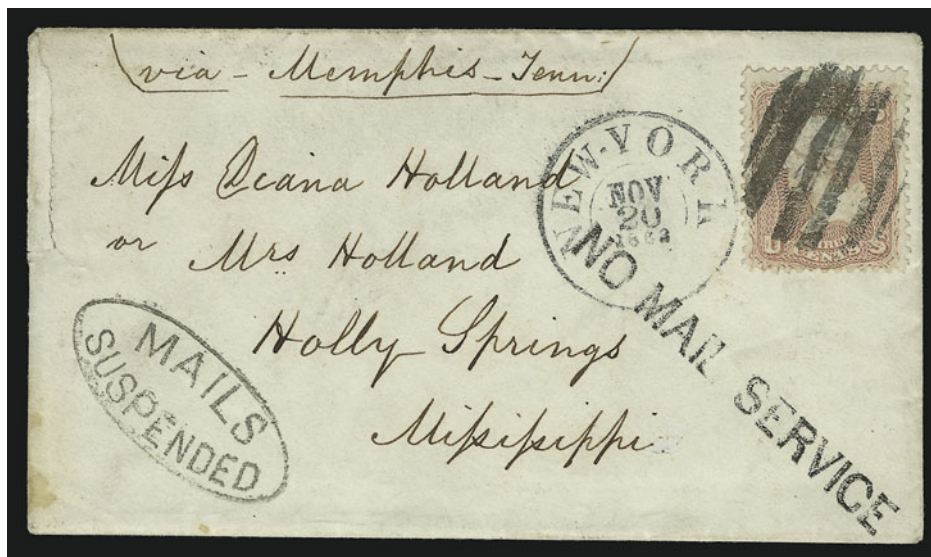 via - Memphis - Tenn:
Miſs Deana Holland
or Mrs Holland
Holly Springs
Miſsiſsippi
NEW-YORK
NOV
20
NO MAIL SERVICE
MAILS
SUSPENDED
CENTS